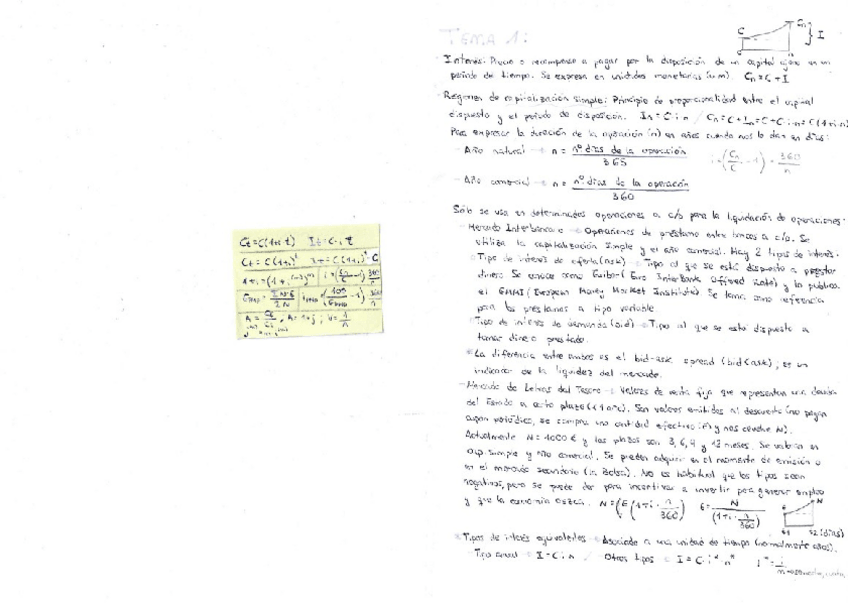 Ct = C(1+i·t) It = C·i·t
TEMA 1:
C Cn I
Interés: Precio o recompensa a pagar por la disposición de un capital ajeno en un
periodo de tiempo. Se expresa en unidades monetarias (u.m). Cn = C + I
Régimen de capitalización simple: Principio de proporcionalidad entre el capital
dispuesto y el periodo de disposición. In = C·i·n / Cn = C + In = C + C·i·n = C(1+i·n)
Para expresar la duración de la operación (n) en años cuando nos lo dan en días:
- Año natural → n = nº días de la operación
365
i = (Cn/C - 1) · 360/n
- Año comercial → n = nº días de la operación
360
Sólo se usa en determinadas operaciones a c/p para la liquidación de operaciones:
- Mercado Interbancario → Operaciones de préstamo entre bancos a c/p. Se
utiliza la capitalización simple y el año comercial. Hay 2 tipos de interés:
Tipo de interés de oferta (ask) → Tipo al que se está dispuesto a prestar
dinero. Se conoce como Euribor (Euro InterBank Offered Rate) y lo publica
el EMMI (European Money Market Institute). Se toma como referencia
para los préstamos a tipo variable.
Tipo de interés de demanda (bid) → Tipo al que se está dispuesto a
tomar dinero prestado.
La diferencia entre ambos es el bid-ask spread (bid<ask), es un
indicador de la liquidez del mercado.
- Mercado de Letras del Tesoro → Valores de renta fija que representan una deuda
del Estado a corto plazo (<1 año). Son valores emitidos al descuento (no pagan
cupón periódico, se compra una cantidad efectivo (E) y nos devuelve N).
Actualmente N = 1000 € y los plazos son 3, 6, 9 y 12 meses. Se valoran en
cap. simple y año comercial. Se pueden adquirir en el momento de emisión o
en el mercado secundario (la Bolsa). No es habitual que los tipos sean
negativos, pero se puede dar para incentivar a invertir para generar empleo
y que la economía crezca. N = E(1+i·n/360) E = N/(1+i·n/360)
(días)
Tipos de interés equivalentes → Asociado a una unidad de tiempo (normalmente años).
- Tipo anual → I = C·i·n / Otros tipos →